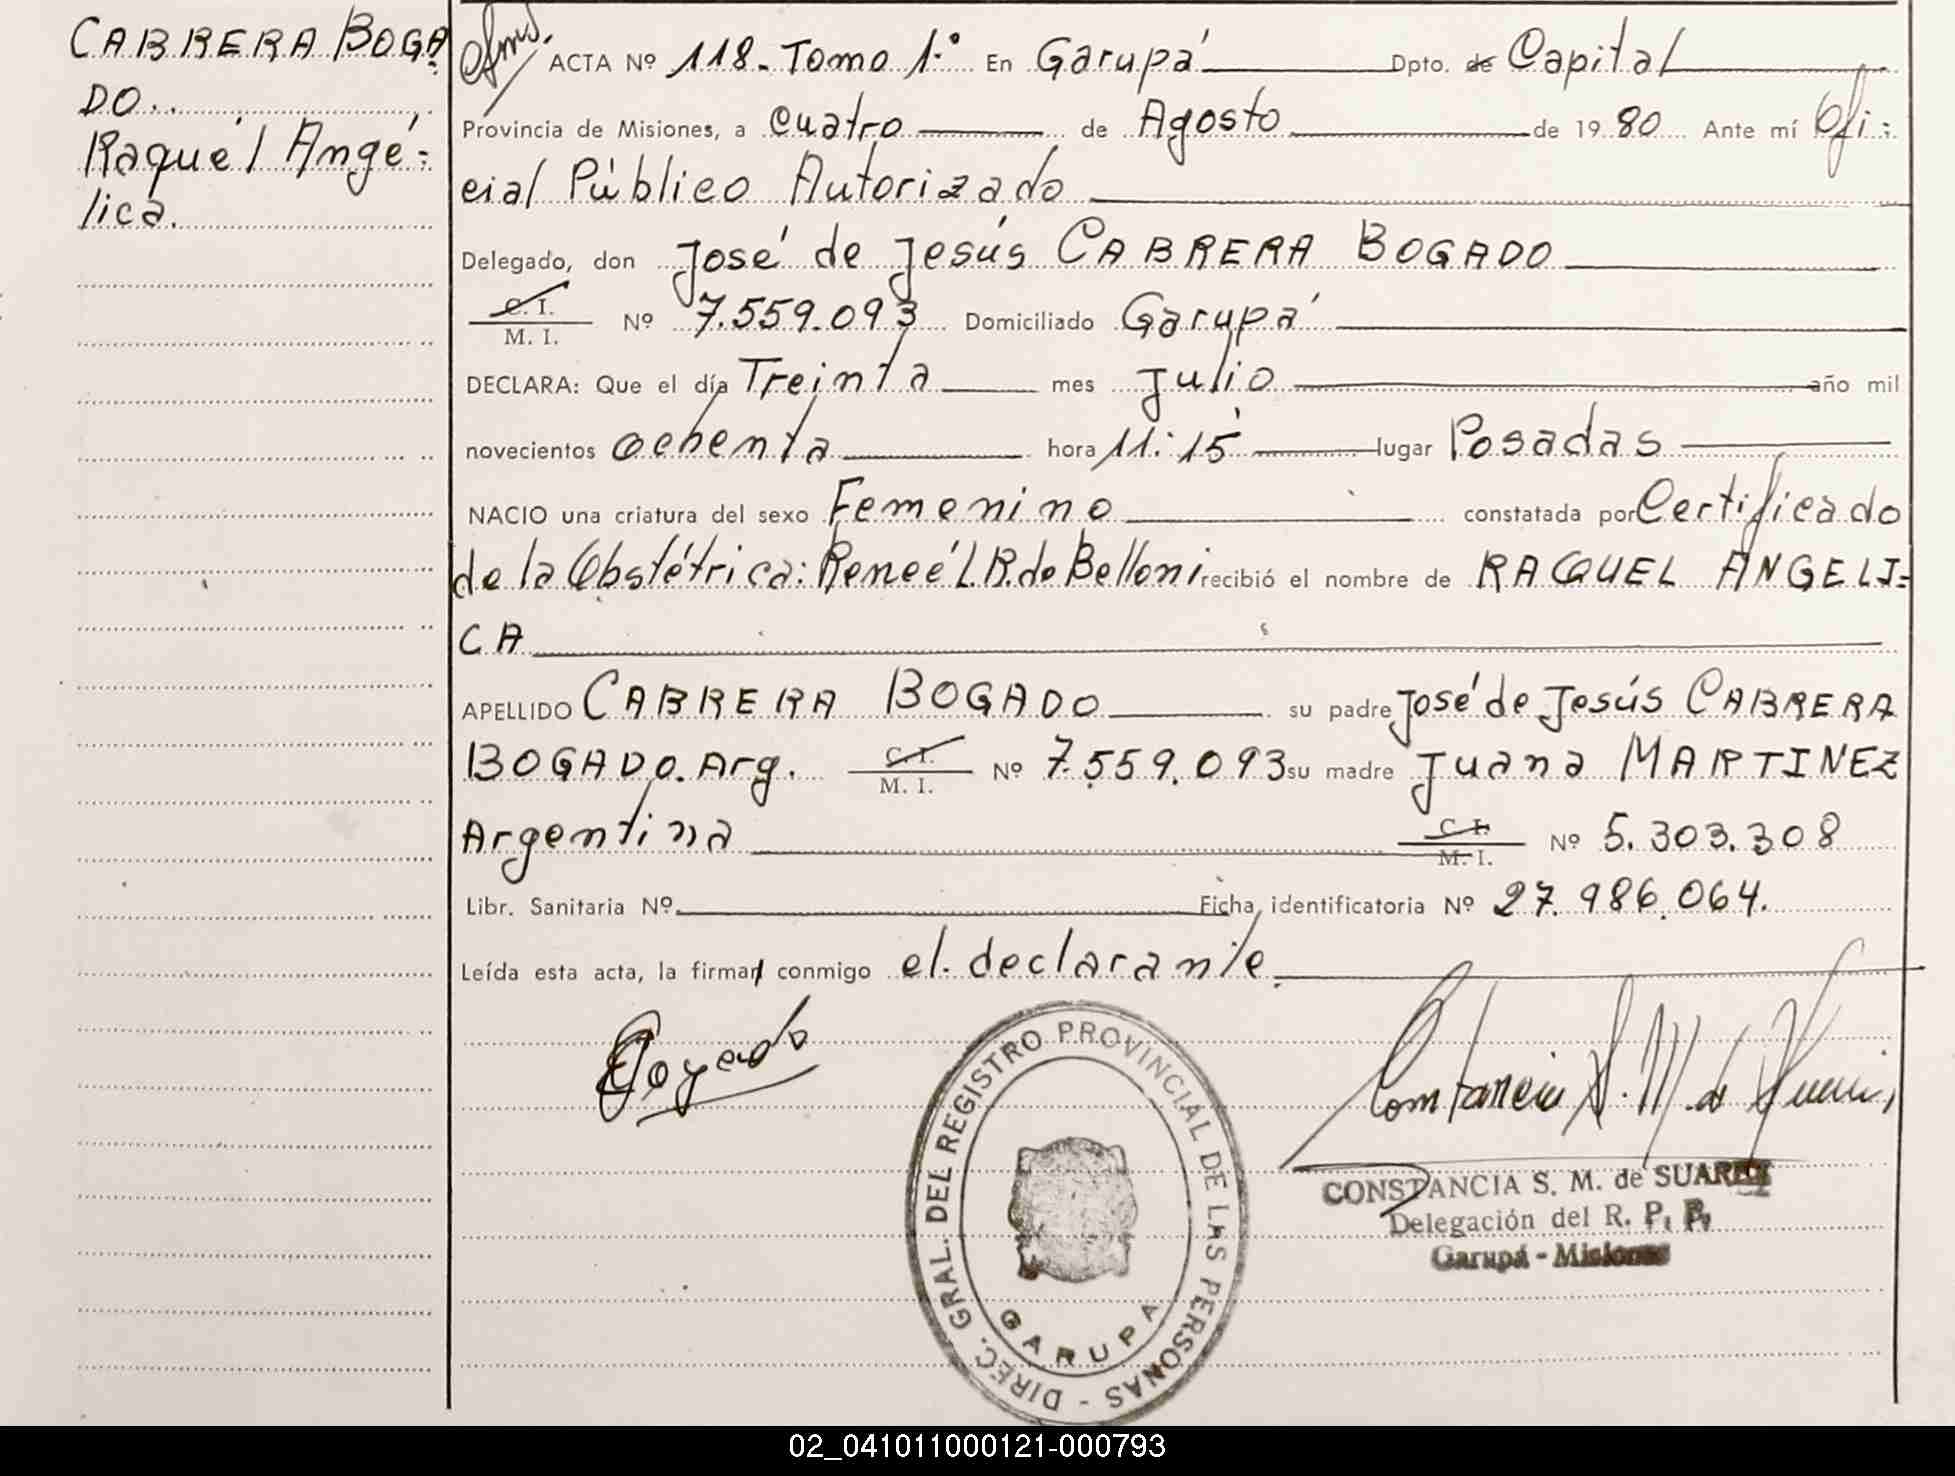 CABRERA BOGA
DO..
Raquél Angé-
lica.
ACTA Nº 118- Tomo 1º En Garupá Dpto. de Capital
Provincia de Misiones, a cuatro de Agosto de 1980 Ante mí Ofi-
cial Público Autorizado
Delegado, don José de Jesús CABRERA BOGADO
C. I.
M. I. Nº 7.559.093 Domiciliado Garupá
DECLARA: Que el día Treinta mes Julio año mil
novecientos ochenta hora 11:15 lugar Posadas
NACIO una criatura del sexo Femenino constatada por Certificado
de la Obstétrica: Reneé L.R. de Belloni recibió el nombre de RAQUEL ANGELI=
CA
APELLIDO CABRERA BOGADO su padre José de Jesús CABRERA
BOGADO. Arg. C. I. M. I. Nº 7.559.093 su madre Juana MARTINEZ
Argentina C. I. M. I. Nº 5.303.308
Libr. Sanitaria Nº Ficha identificatoria Nº 27.986.064.
Leída esta acta, la firman conmigo el declarante
DIREC. GRAL. DEL REGISTRO PROVINCIAL DE LAS PERSONAS -
GARUPA
CONSTANCIA S. M. de SUAREZ
Delegación del R. P. P.
Garupá - Misiones
02_041011000121-000793